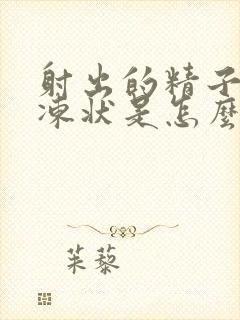 射出的精子
凍狀是怎麼
茱藜